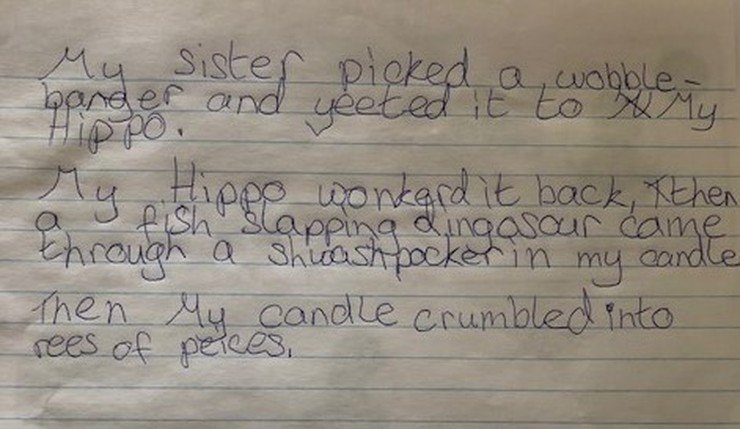 My sister picked a wobble-
banger and yeeted it to My
Hippo.
My Hippo wonkard it back, then
a fish slapping dingasour came
through a shwashpocker in my candle
Then My candle crumbled into
rees of peices.